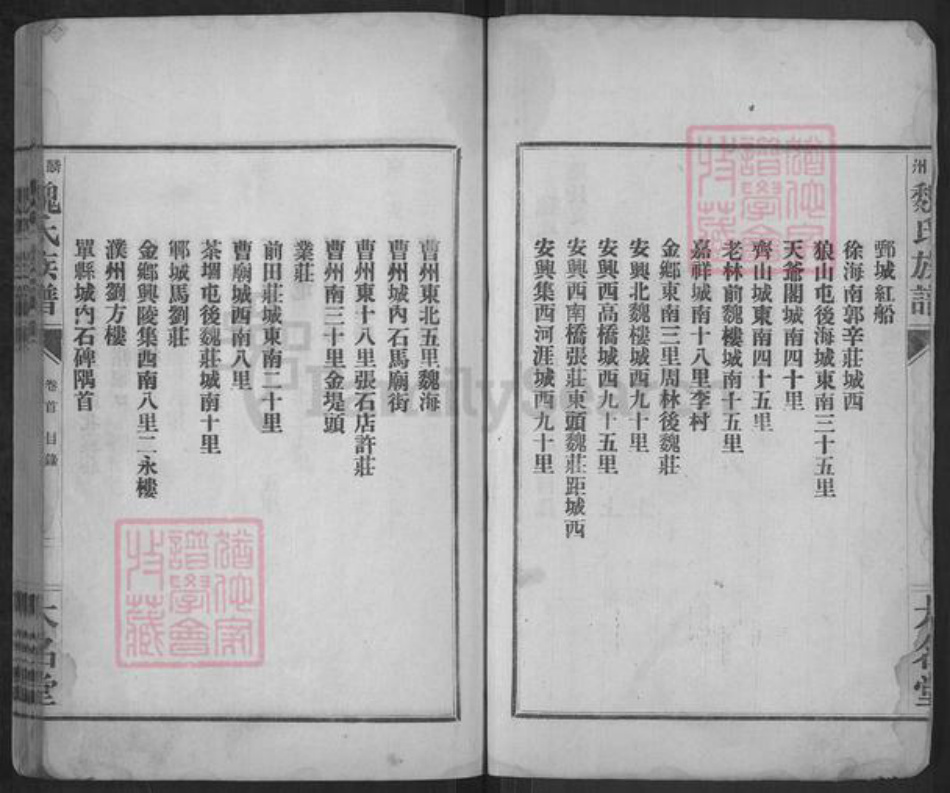 州魏氏族譜
大名堂
鄄城紅船
徐海南郭辛莊城西
狼山屯後海城東南三十五里
天爺閣城南四十里
齊山城東南四十五里
老林前魏樓城南十五里
嘉祥城南十八里李村
金鄉東南三里周林後魏莊
安興北魏樓城西九十里
安興西高橋城西九十五里
安興西南橋張莊東頭魏莊距城西
安興集西河涯城西九十里
曹州東北五里魏海
曹州城內石馬廟街
曹州東十八里張石店許莊
曹州南三十里金堤頭
業莊
前田莊城東南二十里
曹廟城西南八里
茶堌屯後魏莊城南十里
鄆城馬劉莊
金鄉興陵集西南八里二永樓
濮州劉方樓
單縣城內石碑隅首
麟魏氏族譜
卷首 目錄
大名堂
FamilySearch
猶他家
譜學會
收藏
猶他家
譜學會
收藏